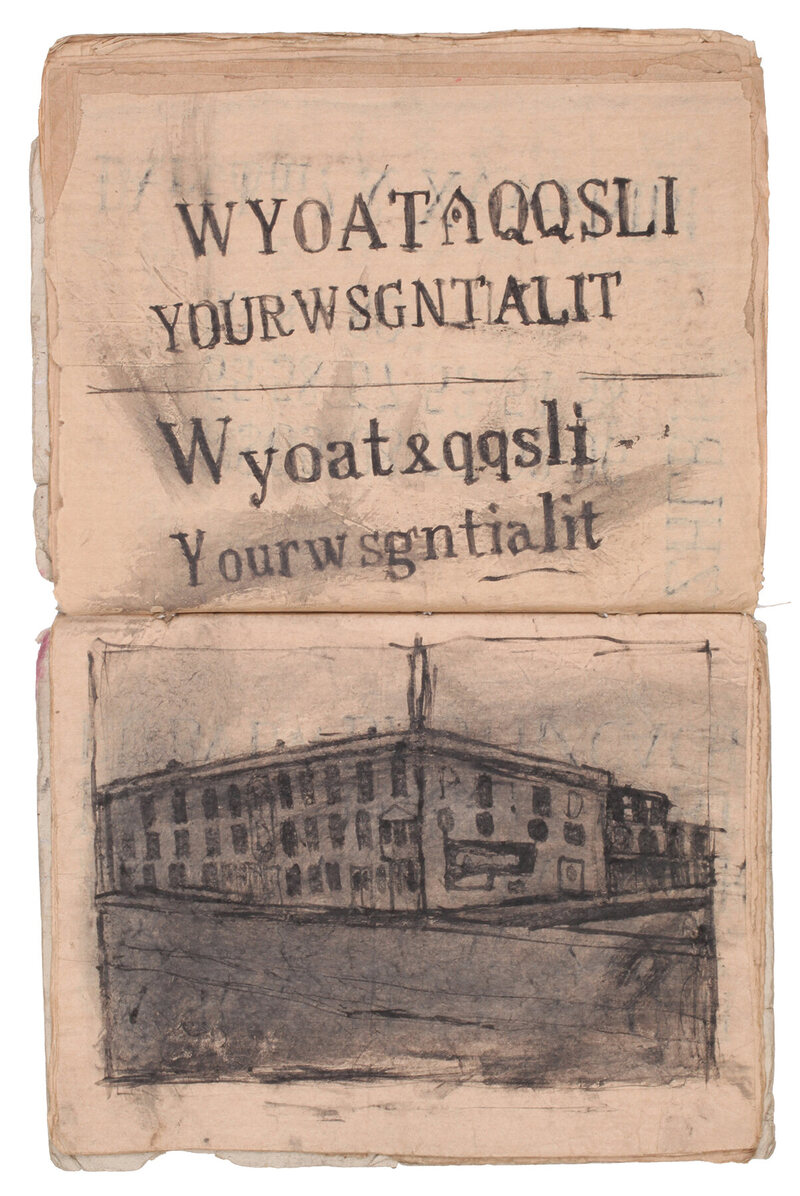 WYOAT&QQSLI
YOURWSGNTIALIT
Wyoat&qqsli
Yourwsgntialit